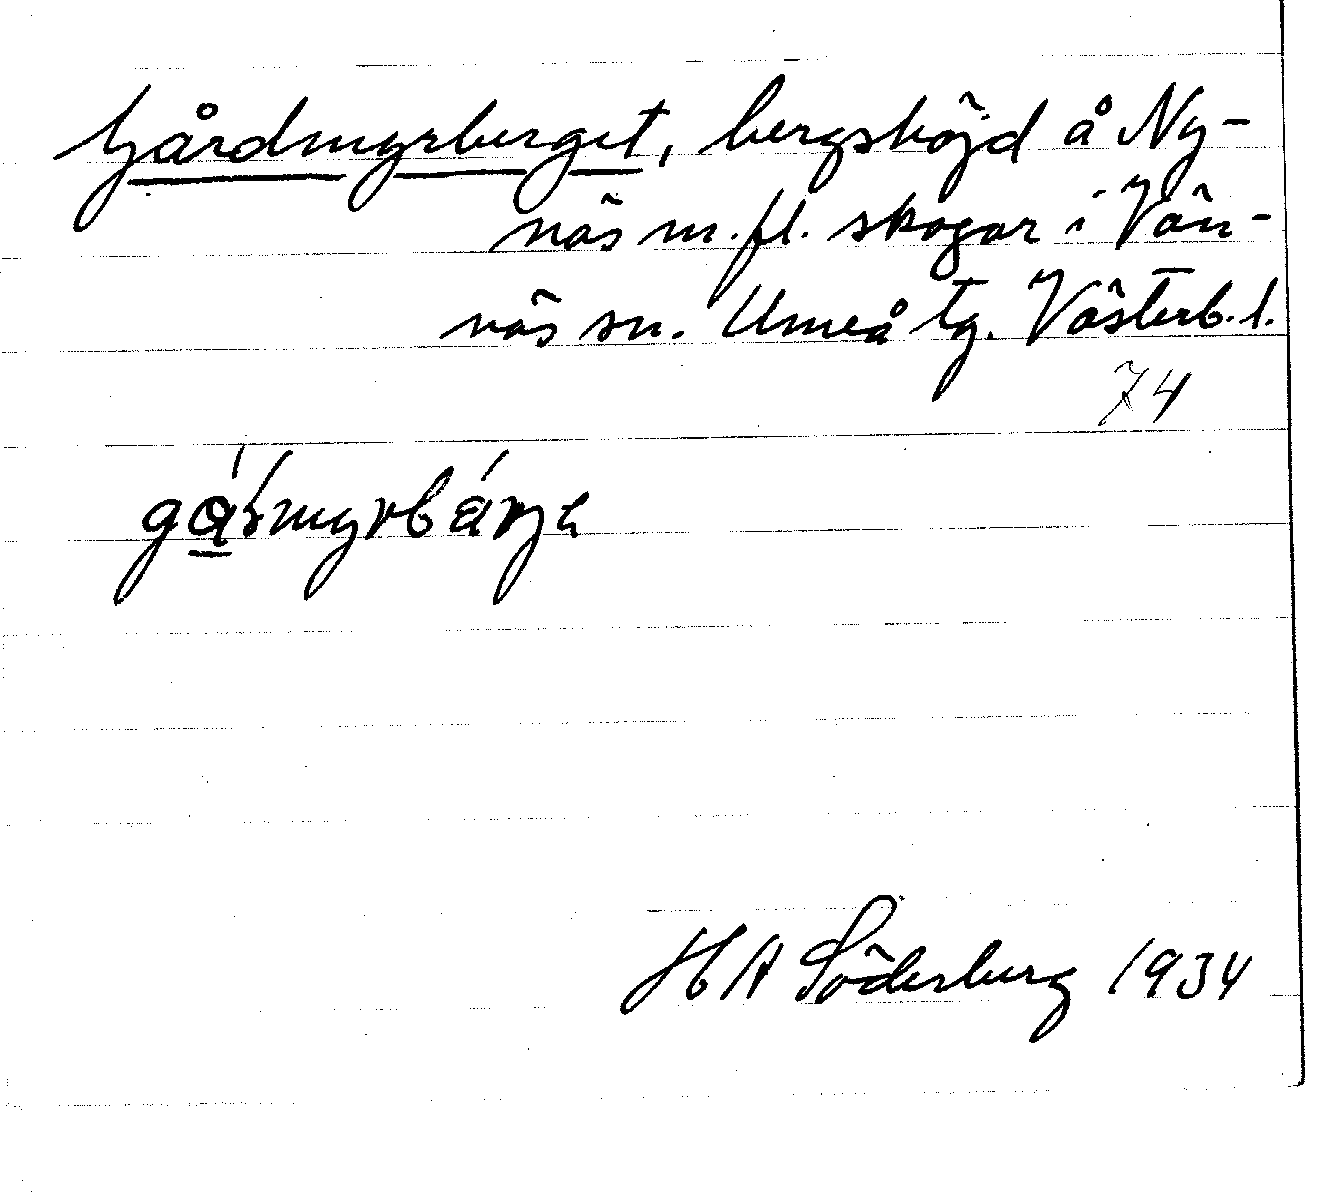 Gårdmyrberget, bergshöjd å Ny-
näs m.fl. skogar i Vän-
näs sn. Umeå tg. Västerb. l.
74
H A Söderberg 1934